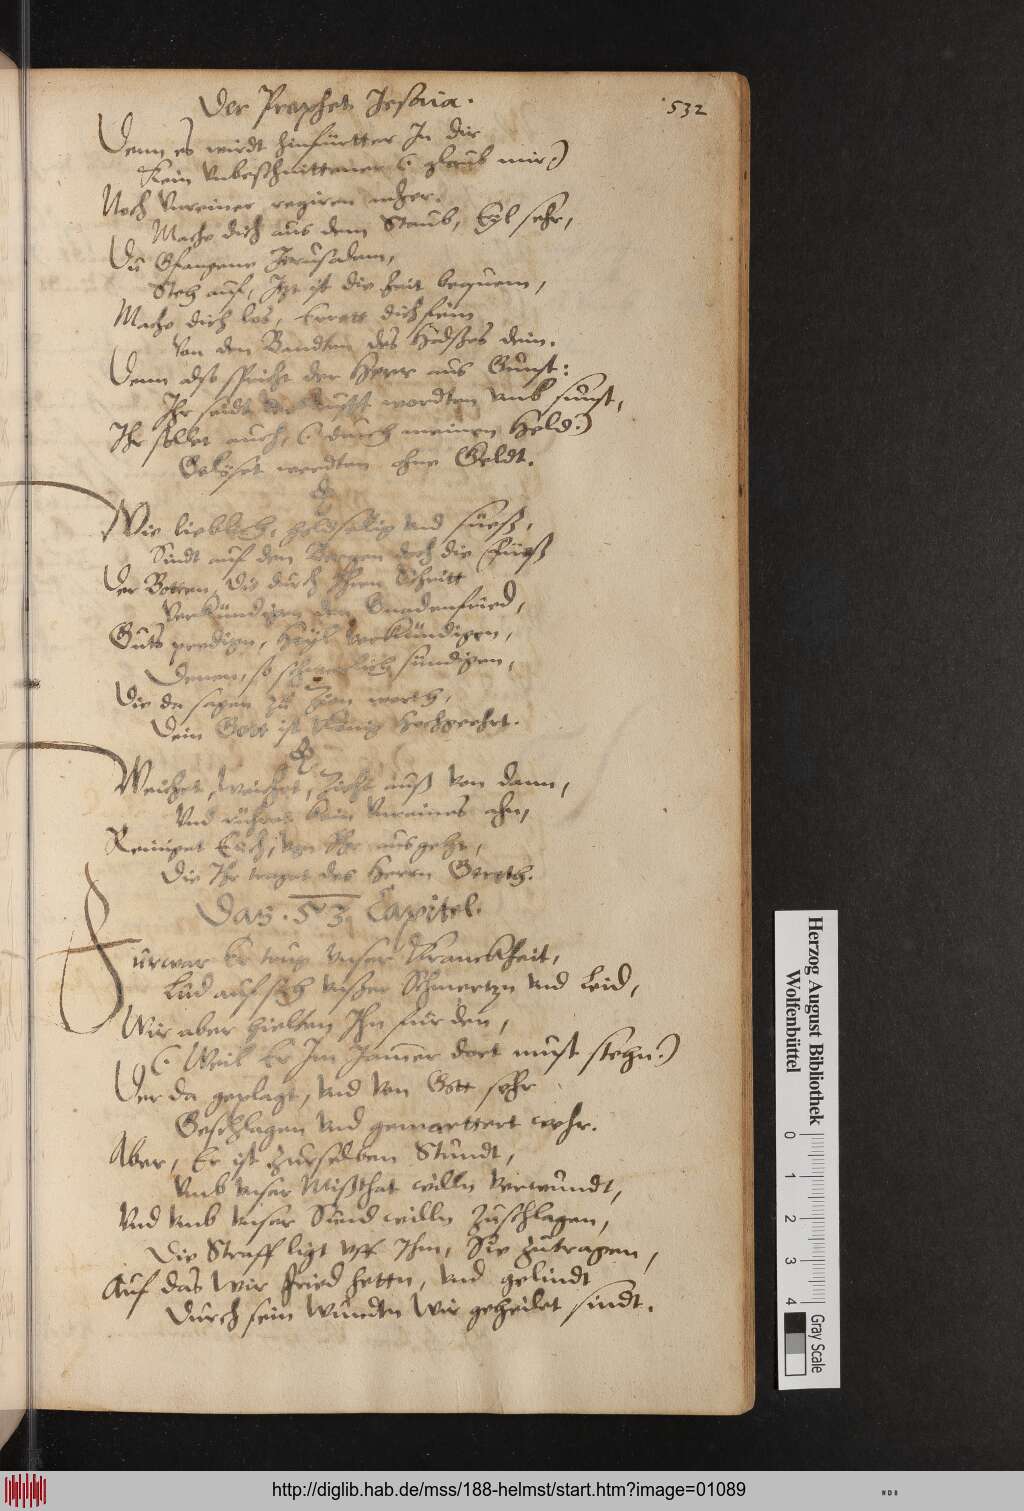 Der Prophet Jesaia.
532
Denn es wirdt hinfürtter In dir
Kein Unbeschnittener (: glaub mir:)
Noch Unreiner regiren mher.
Mache dich aus dem Staub, Eyl sehr,
Du Gfangene Jerusalem,
Steh auf, Itzt ist die Zeit bequem,
Mache dich los, Errett dich fein
Von den Bandten des Halses dein.
Denn also spricht der Herr aus Gunst:
Ihr seidt verkaufft wordten umb sunst,
Ihr sollet auch, (: durch meinen Held:)
Gelöset werdten ohne Geldt.
Wie lieblich, holdselig und süess,
Sindt auf den Bergen doch die Füess
Der Botten, Die durch Ihren Schritt
Verkündigen den Gnadenfried,
Guts predign, Heyl verkündigen,
Denen, so schwerlich sündigen,
Die da sagen zu Zion werth,
Dein Gott ist König hochgeehrt.
Weichet, weichet, Zieht auß von dann,
Und rühret kein Unreines ahn,
Reiniget Euch, von Ihr ausgeht,
Die Ihr traget des Herrn Gereth.
Das .53. Capitel.
Furwar Er trug Unser Kranckheit,
Lud auf sich unsser Schmertzn und Leid,
Wir aber hielten Ihn für den,
(: Weil Er Im Jamer dort must stehn:)
Der da geplagt, und von Gott sehr
Geschlagen und gemartert wehr.
Aber, Er ist zurselben Stundt,
Umb unser Mißthat willn verwundt,
Und umb unser Sünd willn Zuschlagen,
Die Straff ligt uff Ihm, Sie zutragen,
Auf das Wir Fried hettn, und gelindt
Durch sein Wundtn Wir geheilet sindt.
Herzog August Bibliothek
Wolfenbüttel
0 1 2 3 4
Gray Scale
http://diglib.hab.de/mss/188-helmst/start.htm?image=01089